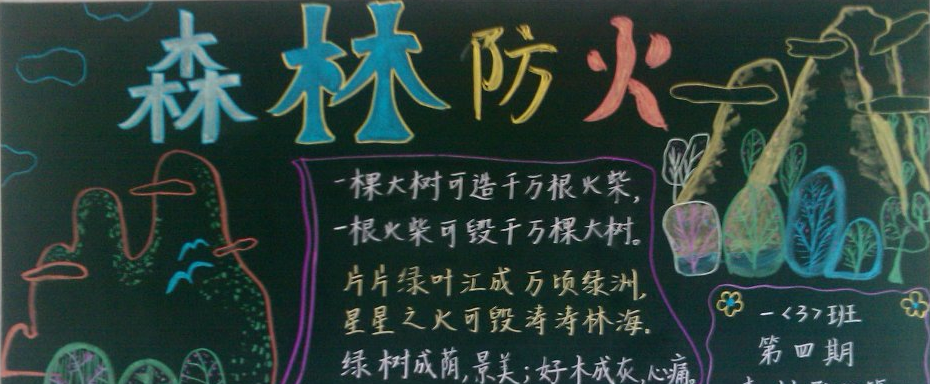 森林防火
一棵大树可造千万根火柴,
一根火柴可毁千万棵大树。
片片绿叶汇成万顷绿洲,
星星之火可毁涛涛林海.
绿树成荫,景美;好木成灰,心痛。
一<3>班
第四期